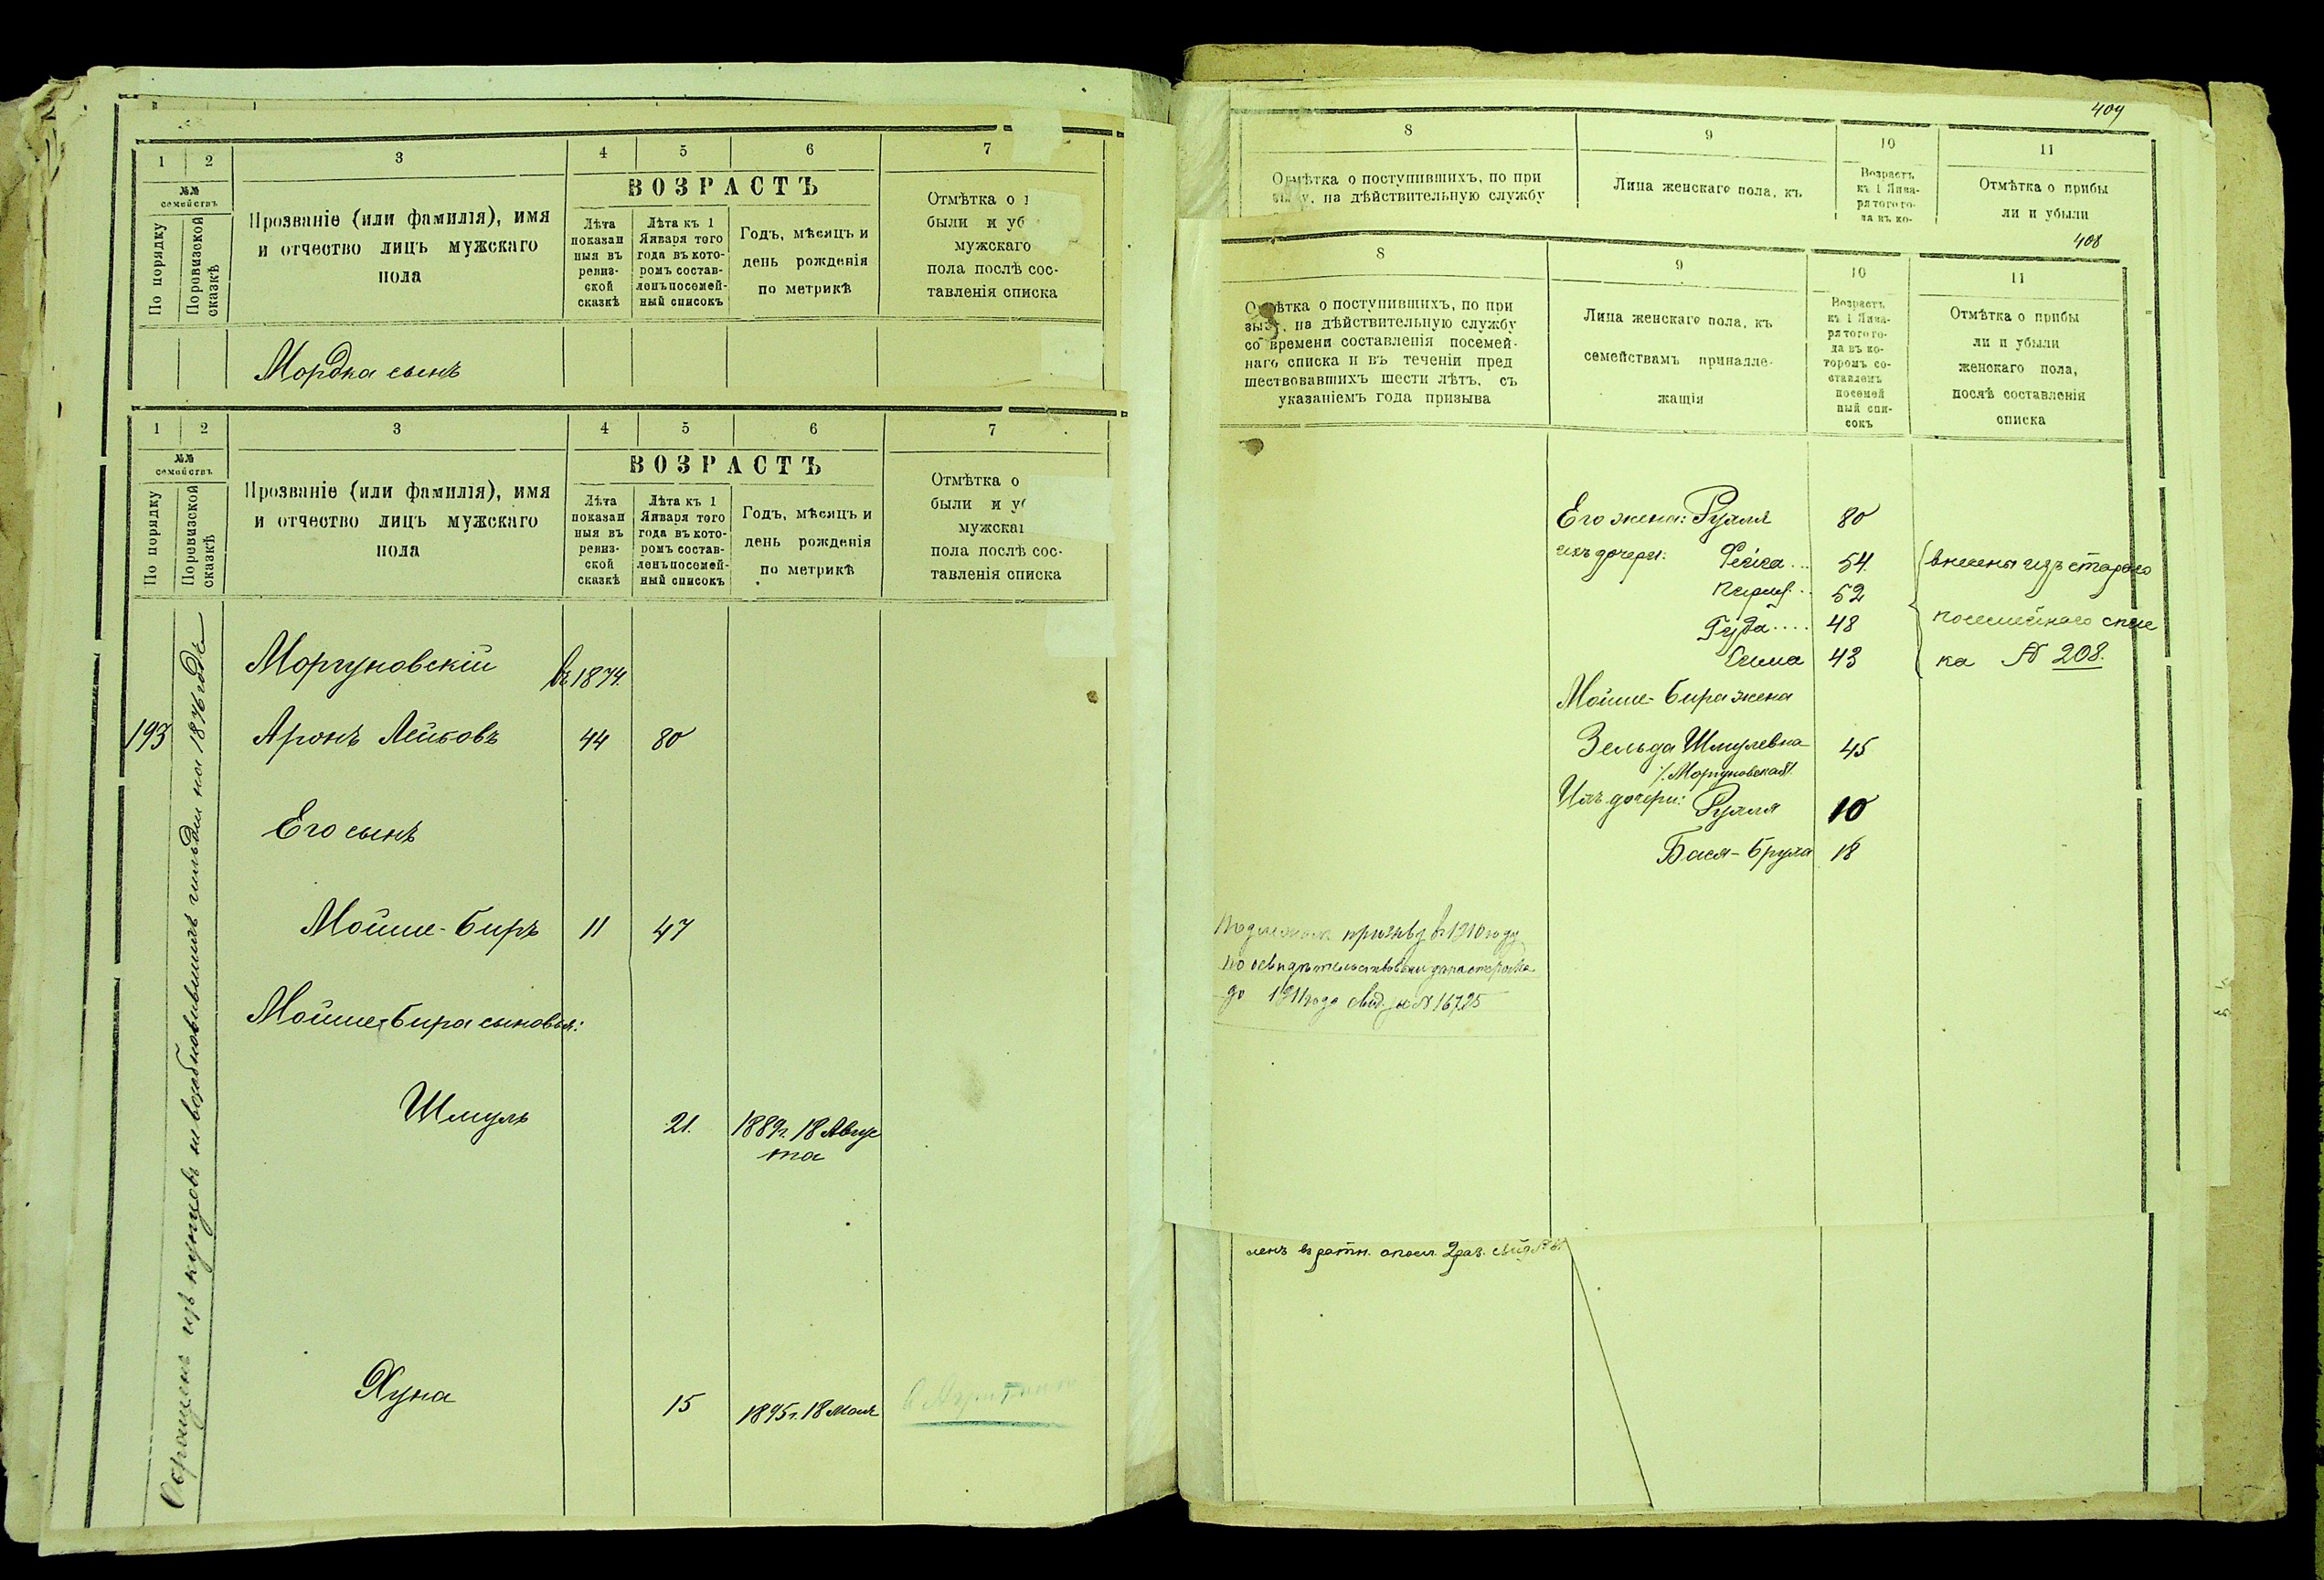 1 2 3 4 5 6 7
№№ семействъ
По порядку
По ревизской сказкѣ
Прозваніе (или фамилія), имя
и отчество лицъ мужскаго
пола
ВОЗРАСТЪ
Лѣта
показан
ныя въ
ревиз-
ской
сказкѣ
Лѣта къ 1
Января того
года въ кото-
ромъ состав-
ленъ посемей-
ный списокъ
Годъ, мѣсяцъ и
день рожденія
по метрикѣ
Отмѣтка о
были и уб
мужскаго
пола послѣ сос-
тавленія списка
Мордка сынъ
1 2 3 4 5 6 7
№№
семействъ
По порядку
По ревизской сказкѣ
Прозваніе (или фамилія), имя
и отчество лицъ мужскаго
пола
ВОЗРАСТЪ
Лѣта
показан
ныя въ
ревиз-
ской
сказкѣ
Лѣта къ 1
Января того
года въ кото-
ромъ состав-
ленъ посемей-
ный списокъ
Годъ, мѣсяцъ и
день рожденія
по метрикѣ
Отмѣтка о
были и у
мужска
пола послѣ сос-
тавленія списка
изъ купцовъ не возобновившихъ гильдіи на 1876 годъ
Моргуновскій въ 1874.
193 Аронъ Лейбовъ 44 80
Его сынъ
Мойше-Биръ 11 47
Мойше-Бира сыновья:
Шмуль 21. 1889г. 18 Авгус
та
Хуна 15 1895г. 18 Мая
409
8 9 10 11
Отмѣтка о поступившихъ, по при
зыву, на дѣйствительную службу
Лица женскаго пола, къ
Возрастъ
къ 1 Янва-
ря того го-
да въ ко-
Отмѣтка о прибы
ли и убыли
408
8 9 10 11
Отмѣтка о поступившихъ, по при
зыву, на дѣйствительную службу
со времени составленія посемей-
наго списка и въ теченіи пред
шествовавшихъ шести лѣтъ, съ
указаніемъ года призыва
Лица женскаго пола, къ
семействамъ принадле-
жащія
Возрастъ
къ 1 Янва-
ря того го-
да въ ко-
торомъ со-
ставленъ
посемей
ный спи-
сокъ
Отмѣтка о прибы
ли и убыли
женскаго пола,
послѣ составленія
списка
Его жена: Рухля 80
ихъ дочери: Фейга... 54 внесены изъ стараго
52
Гуда.... 48 посемейнаго спис
Сима 43 ка № 208.
Мойше-Бира жена
Зельда Шмулевна 45
/Моргуновская/.
Ихъ дочери: Рухля 10
Бася-Бруха 18
призыву въ 1910 году
по освидѣтельствованіи
до 1911 года свид. за № 16725
ленъ въ ратн. ополч. 2 раз.